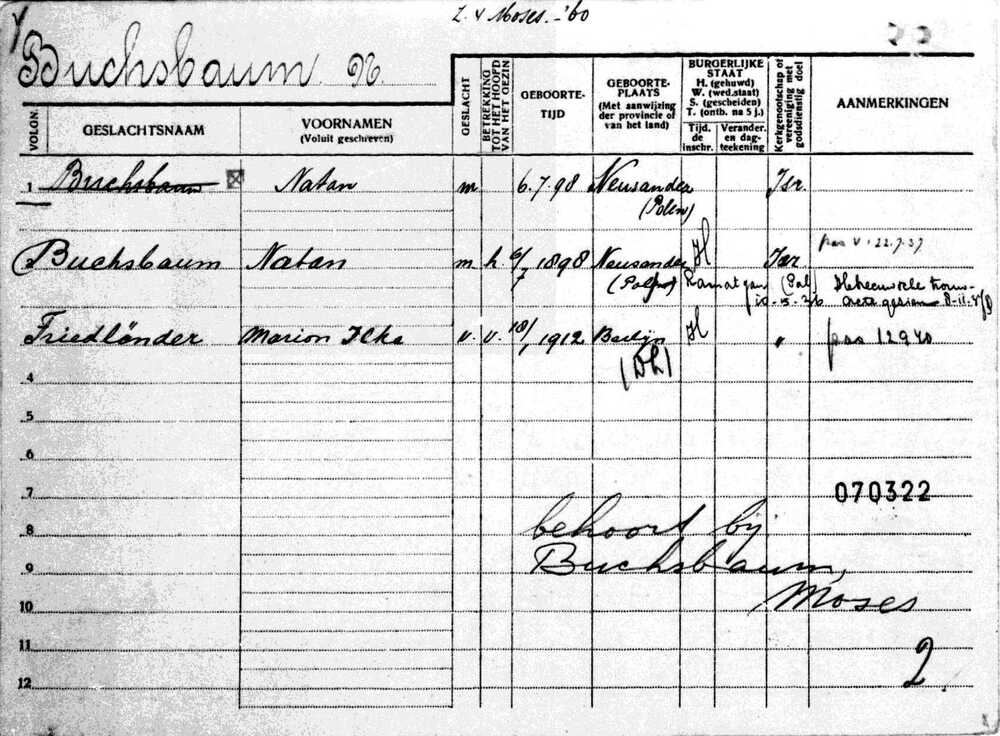 Z. v Moses. - '60
Buchsbaum N.
VOLGN. GESLACHTSNAAM VOORNAMEN (Voluit geschreven) GESLACHT BETREKKING TOT HET HOOFD VAN HET GEZIN GEBOORTE-TIJD GEBOORTE-PLAATS (Met aanwijzing der provincie of van het land) BURGERLIJKE STAAT H. (gehuwd) W. (wed.staat) S. (gescheiden) T. (ontb. na 5 j.) Tijd. de inschr. Verander. en dag-teekening Kerkgenootschap of vereeniging met godsdienstig doel AANMERKINGEN
1 Buchsbaum Natan m. 6.7.98 Neusandez Isr.
(Polen)
pas v. 22.7.37
Buchsbaum Natan m. h. 6/7 1898 Neusandez H Isr.
(Polen) Ramat gan (Pal)
Friedländer Marion Ilka v. v. 18/1 1912 Berlijn H " pas 12940
(Dld)
4
5
6
7 070322
8 behoort bij
9 Buchsbaum,
10 Moses
11
12 2.